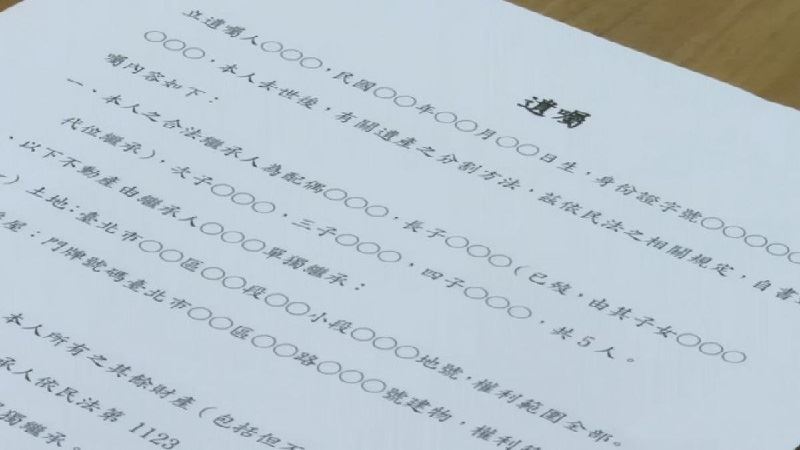 遺囑
立遺囑人○○○,民國○○年○○月○○日生,身份證字號○○○○○
○○○,本人去世後,有關遺產之分割方法,茲依民法之相關規定,自書
囑內容如下:
一、本人之合法繼承人為配偶○○○,長子○○○(已歿,由其子女○○○
代位繼承),次子○○○,三子○○○,四子○○○,共5人。
、以下不動產由繼承人○○○單獨繼承:
)土地:臺北市○○區○○段○○小段○○○地號,權利範圍全部。
屋:門牌號碼臺北市○○區○○路○○○號建物,權利
本人所有之其餘財產(包括但不
承人依民法第 1123
單獨繼承。